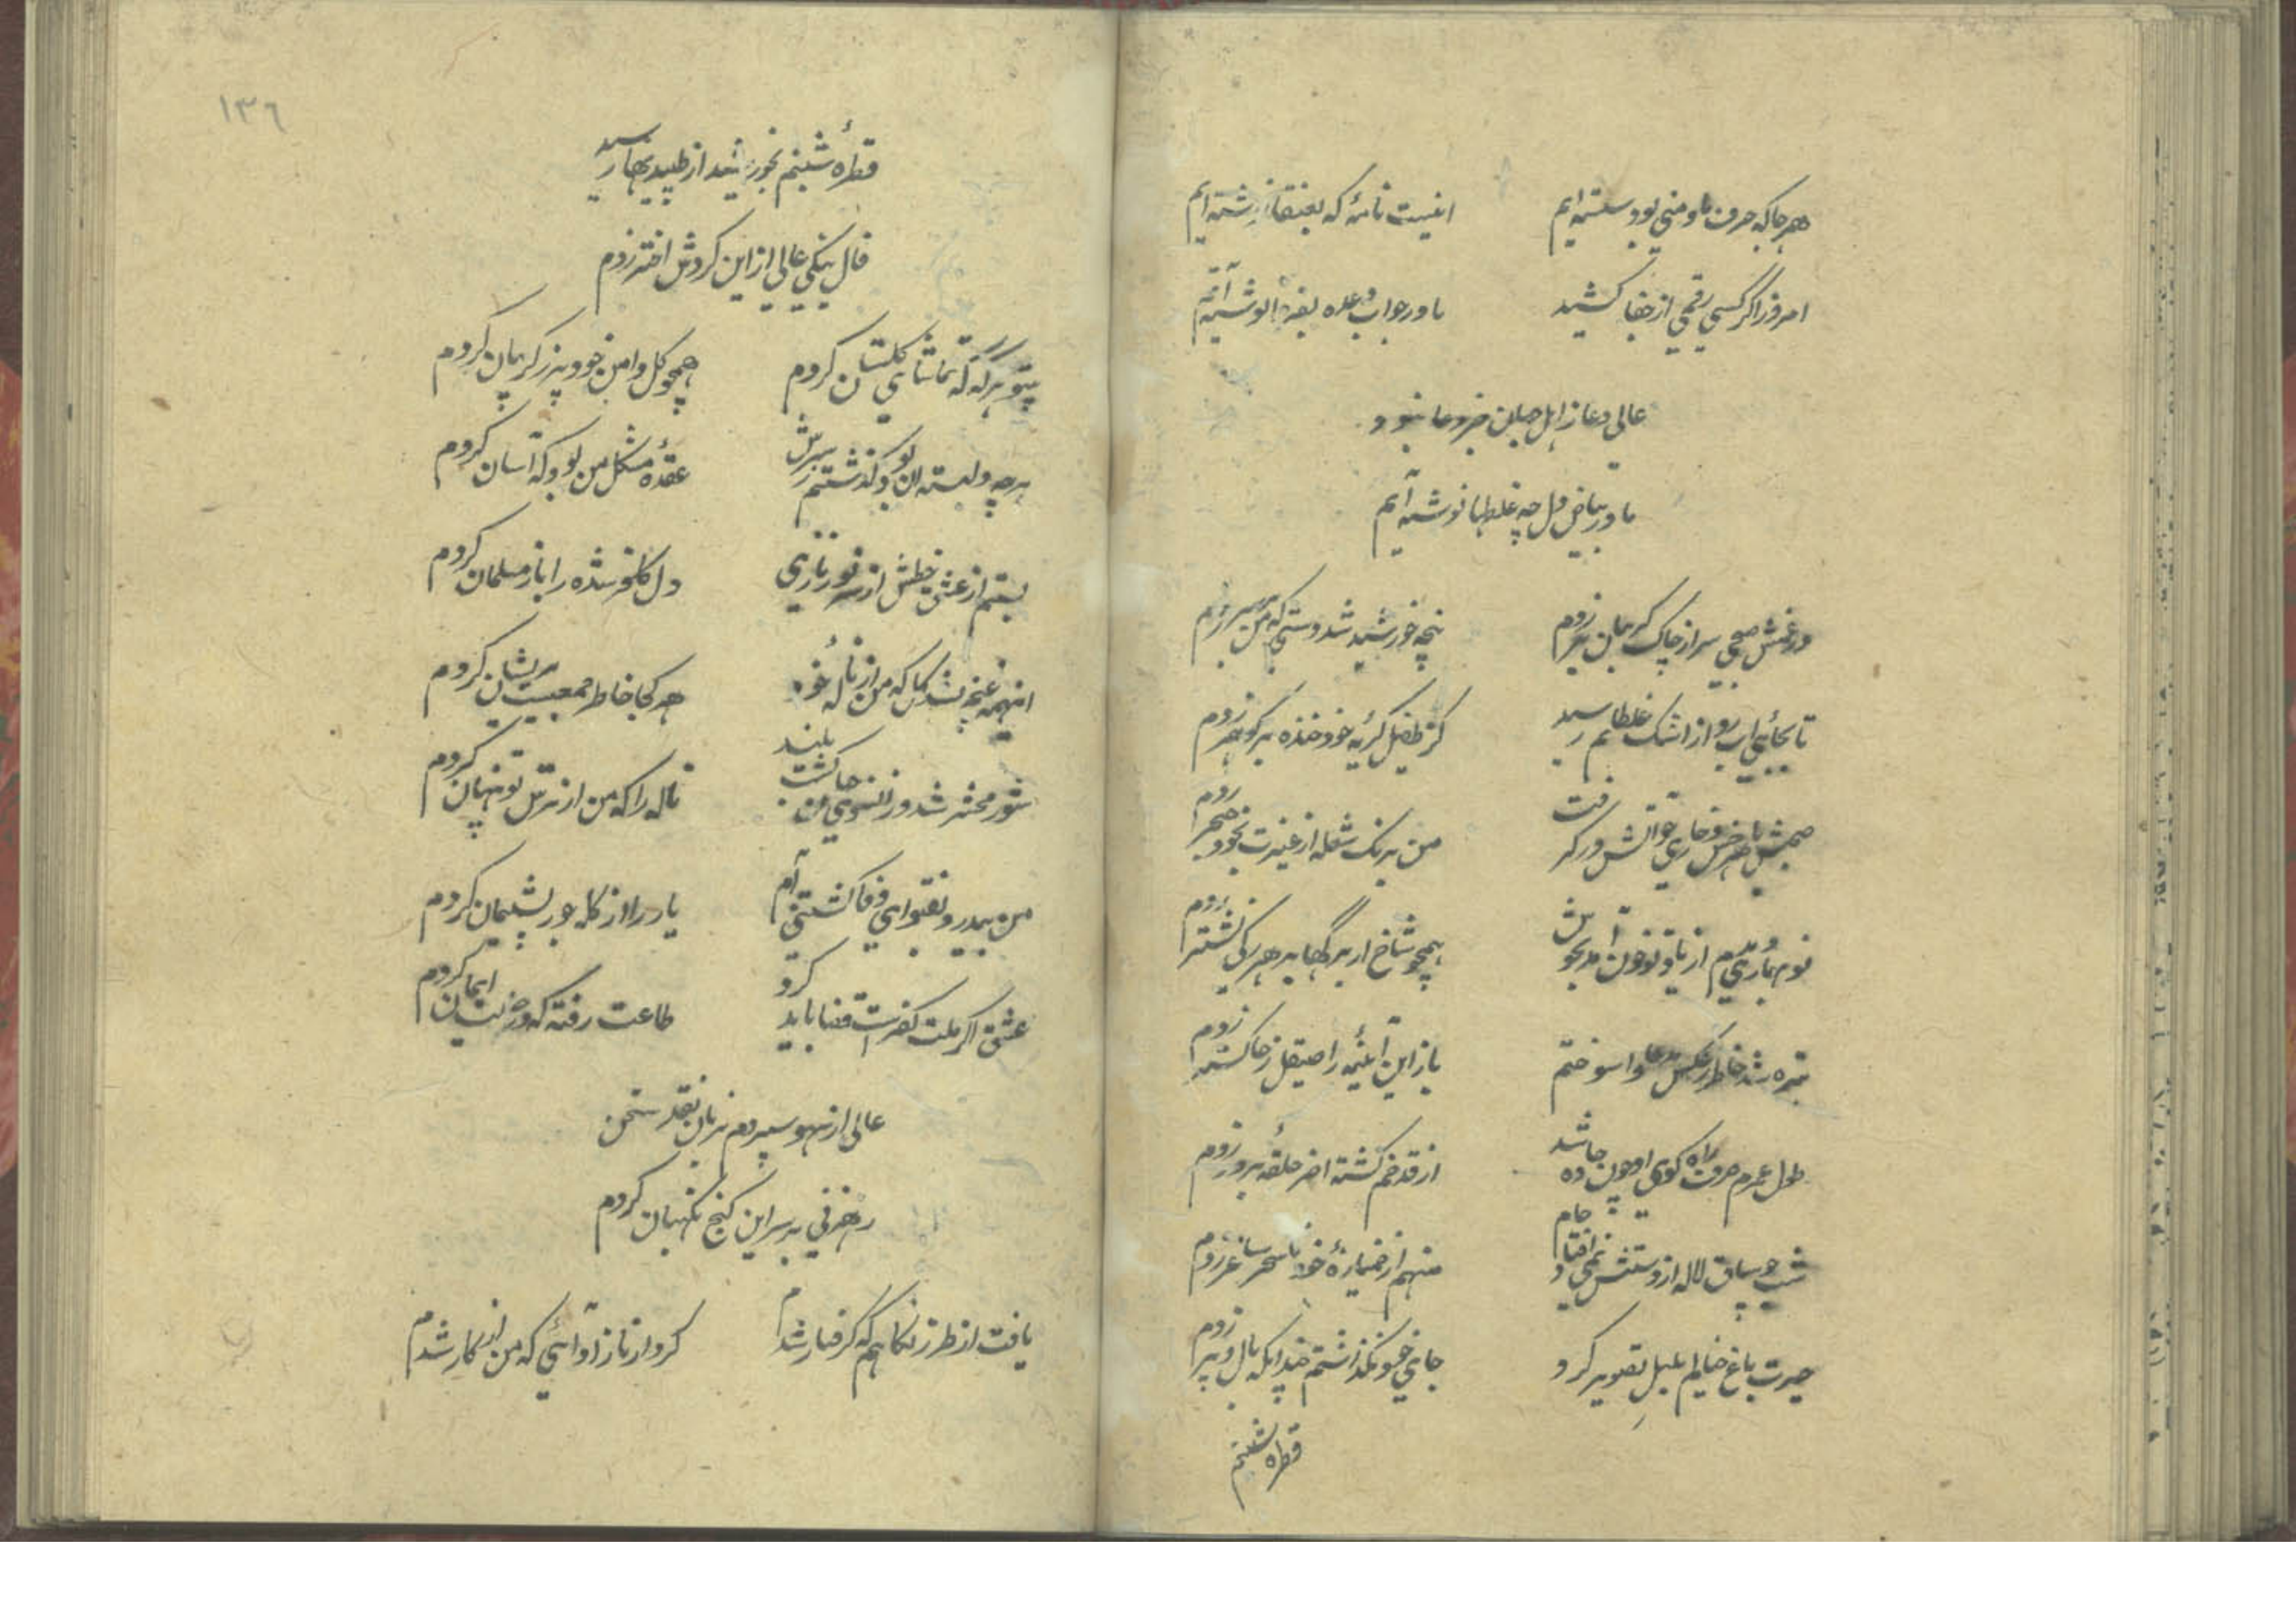 هر جا که حرف ما و منی بود شسته ایم
اینست نامهٔ که بعنقا نوشته ایم
امروز اگر کسی رقمی از جفا کشید
ما در جواب وعده بفردا نوشته ایم
عالی دعا ز اهل جهان جز دعا نبود
ما در بیاض دل چه غلطها نوشته ایم
در غمش صبحی سر از چاک گریبان بر زدم
پنجه خورشید شد دستی که من بر سر زدم
تا بجائی آبرو از اشک غلطانم رسید
کز طفیل گریه خود خنده بر گوهر زدم
با هر خس و خاری چو آتش در گرفت
من برنک شعله از غیرت بخود خنجر زدم
از یاد تو خون آمد بجوش
همچو شاخ ار برگها بر هر رگی نشتر زدم
تیره شد خاطر ز عکس مدعا واسوختم
باز این آئینه را صیقل ز خاکستر زدم
طول عمرم صرف راه کوی او چون جاده شد
از قد خم گشته اخر حلقه بر در زدم
شب چو ساق لاله از دستش نمی افتاد جام
منهم از خمیازهٔ خود تا سحر ساغر زدم
حیرت باغ خیالم بلبل تصویر کرد
جای خود نگذاشتم چندانکه بال و پر زدم
قطره شبنم
١٣٦
قطرهٔ شبنم بخورشید از طپیدنها رسید
فال نیکی عالی از این کردش اختر زدم
بیتو هر گه که تماشای گلستان کردم
همچو کل دامن خود پر ز کریبان کردم
هر چه وابسته ان بود گذشتم ز سرش
عقدهٔ مشکل من بود که آسان کردم
بستم از عشق خطش از سر نو زناری
دل کافر شده را باز مسلمان کردم
اینهمه غنچه نشد گل که من از نالهٔ خود
هر کجا خاطر جمعیست پریشان کردم
شور محشر شد و زانسوی من خاک گشت بلند
ناله را که من از ترس تو پنهان کردم
من بیدرد بتقوای وفا کشتنی ام
یار را از کله جور پشیمان کردم
عشق اگر ملت کفر است قضا باید کرد
طاعت رفته که در نیت ایمان کردم
عالی از سهو سپردم بزبان نقد سخن
رهزنی بر سر این کنج نکهبان کردم
یافت از طرز نکاهم که گرفتار شدم
کرد از ناز ادائی که من از کار شدم